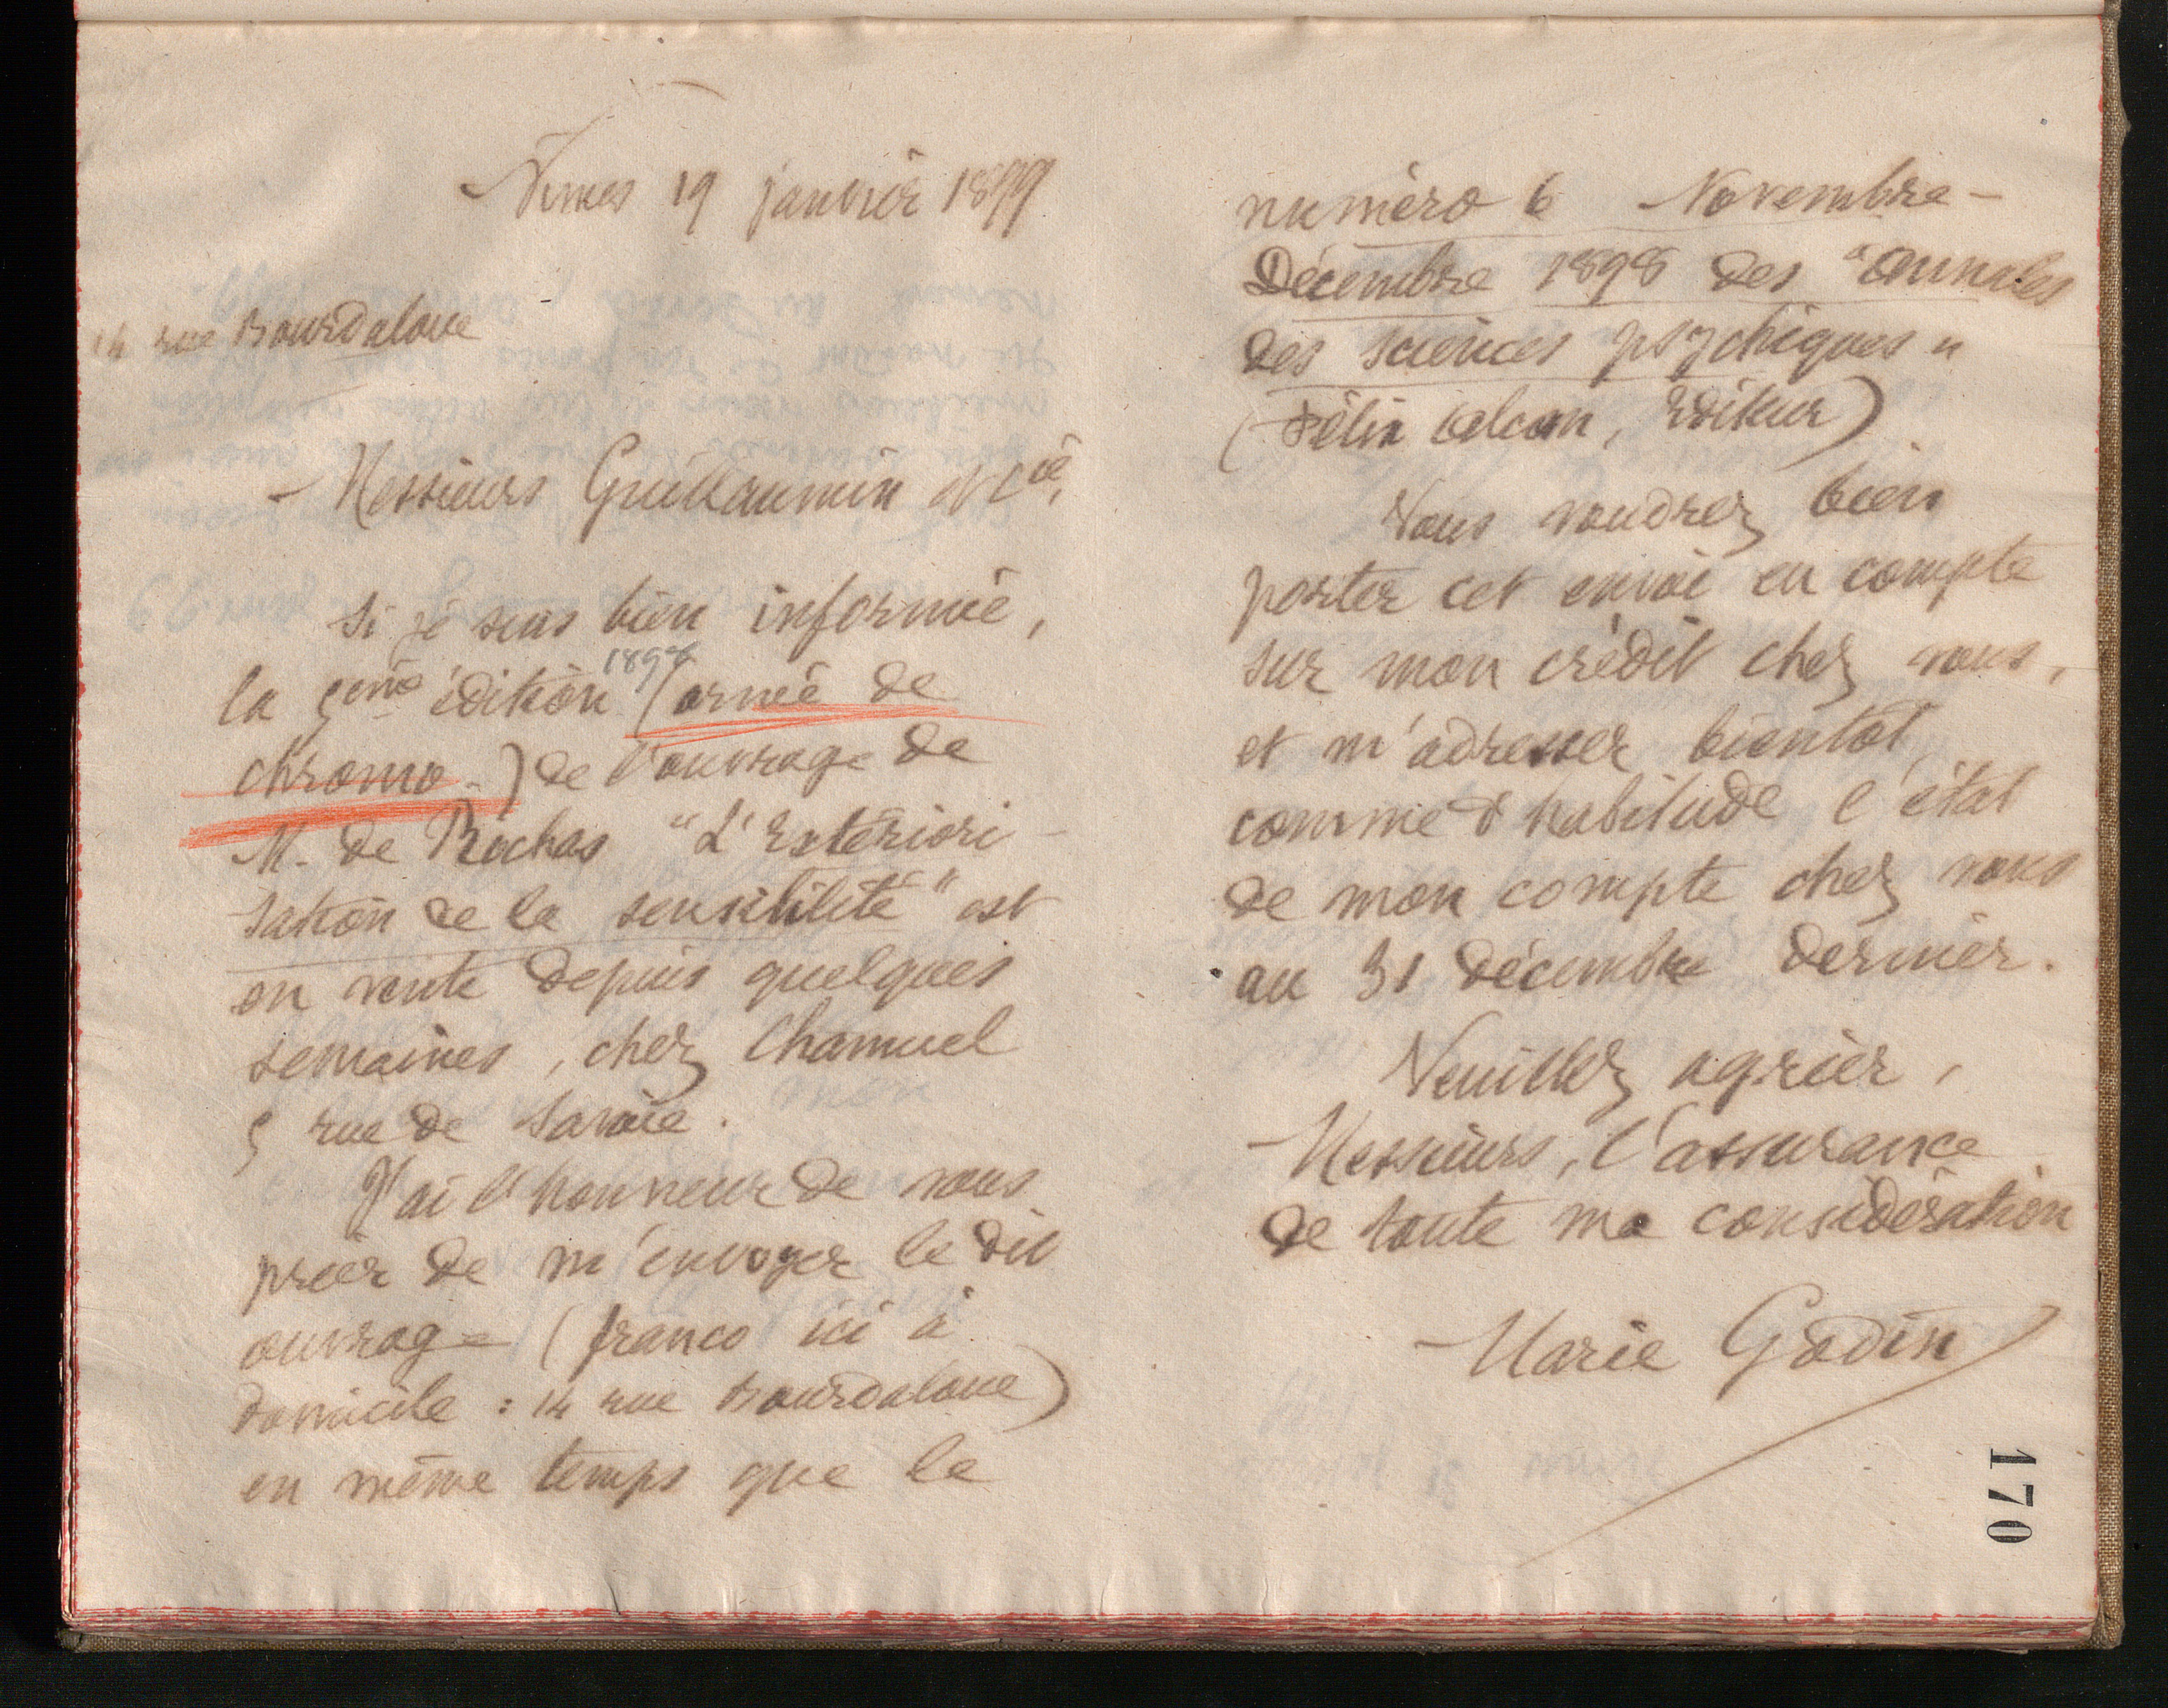 Nimes 19 janvier 1899
14 rue Bourdaloue
Messieurs Guillaumin et Cie,
Si je suis bien informée,
la 5ème édition 1898 (ornée de
chromo-) de l'ouvrage de
M. de Rochas "L'Extériori-
sation de la sensibilité" est
en vente depuis quelques
semaines, chez Chamuel
5 rue de Savoie.
J'ai l'honneur de vous
prier de m'envoyer le dit
ouvrage (franco ici à
domicile : 14 rue Bourdaloue)
en même temps que le
numéro 6 Novembre-
Décembre 1898 des "Annales
des sciences psychiques"
(Félix Alcan, Editeur)
Vous voudrez bien
porter cet envoi en compte
sur mon crédit chez vous,
et m'adresser bientôt,
comme d'habitude l'état
de mon compte chez vous
au 31 décembre dernier.
Veuillez agréer,
Messieurs, l'assurance
de toute ma considération
Marie Godin
170